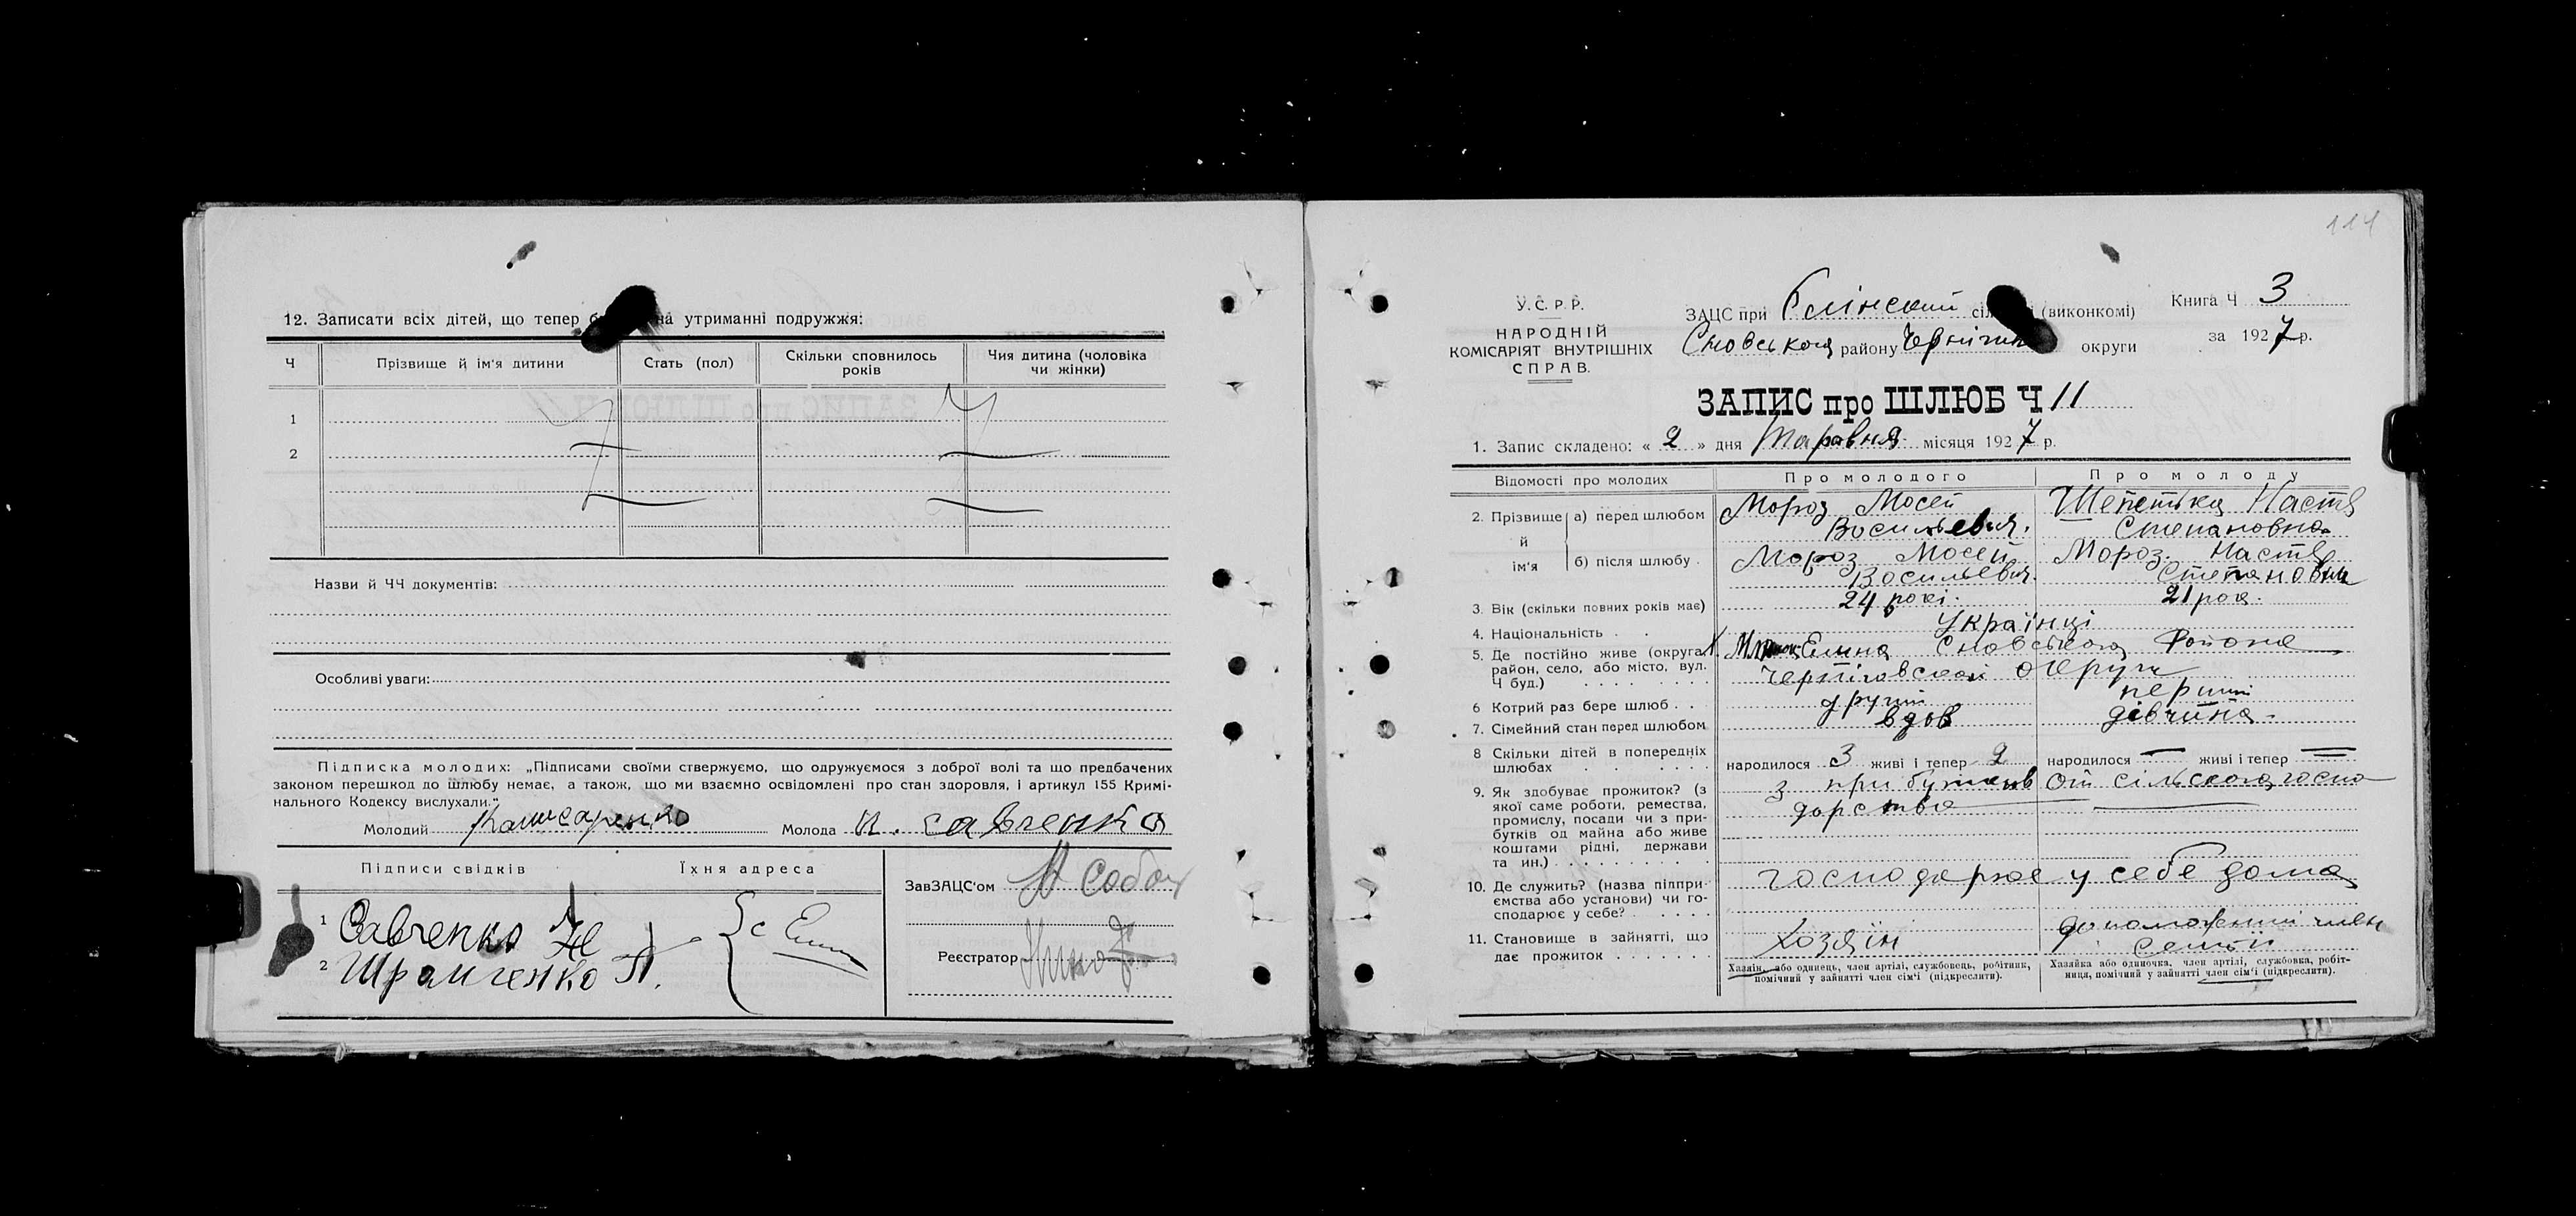 12. Записати всіх дітей, що тепер на утриманні подружжя:
Ч
Прізвище й ім'я дитини
Стать (пол)
Скільки сповнилось років
Чия дитина (чоловіка чи жінки)
1
2
Назви й ЧЧ документів:
Особливі уваги:
Підписка молодих: „Підписами своїми ствержуємо, що одружуємося з доброї волі та що предбачених
законом перешкод до шлюбу немає, а також, що ми взаємно освідомлені про стан здоровля, і артикул 155 Кримі-
нального Кодексу вислухали."
Молодий Молода Н. Савченко
Підписи свідків Їхня адреса
ЗавЗАЦС'ом
1 Савченко
Реєстратор
2 Шрамченко П.
111
У.С.Р.Р.
НАРОДНІЙ
КОМІСАРІЯТ ВНУТРІШНІХ
СПРАВ.
ЗАЦС при (виконкомі)
Сновського району округи
Книга Ч 3
за 1927 р.
ЗАПИС про ШЛЮБ Ч 11
1. Запис складено: « 2 » дня Травня місяця 1927 р.
Відомості про молодих Про молодого Про молоду
2. Прізвище й ім'я
а) перед шлюбом
Мороз Мосей
Васильевич.
Настя
Степановна
б) після шлюбу
Мороз Мосей
Васильевич.
Мороз Настя
Степановна
3. Вік (скільки повних років має) 24 рокі. 21 рок.
4. Національність Українці
5. Де постійно живе (округа,
район, село, або місто, вул.
Ч буд.)
Єлина Сновського Района
Черніговской округи
6 Котрий раз бере шлюб другий перший
7. Сімейний стан перед шлюбом вдов дівчина.
8 Скільки дітей в попередніх
шлюбах
народилося 3 живі і тепер 2 народилося — живі і тепер —
9. Як здобуває прожиток? (з
якої саме роботи, ремества,
промислу, посади чи з при-
бутків од майна або живе
коштами рідні, держави
та ин.)
з прибутков от сільского госпо
дарства
10. Де служить? (назва підпри-
ємства або установи) чи го-
сподарює у себе?
господарює у себе дома
11. Становище в зайнятті, що
дає прожиток
Хозяін
член
семьї
Хазяїн, або одинець, член артілі, службовець, робітник,
помічний у зайнятті член сім'ї (підкреслити).
Хазяйка або одиночка, член артілі, службовка, робіт-
ниця, помічний у зайнятті член сім'ї (підкреслити).